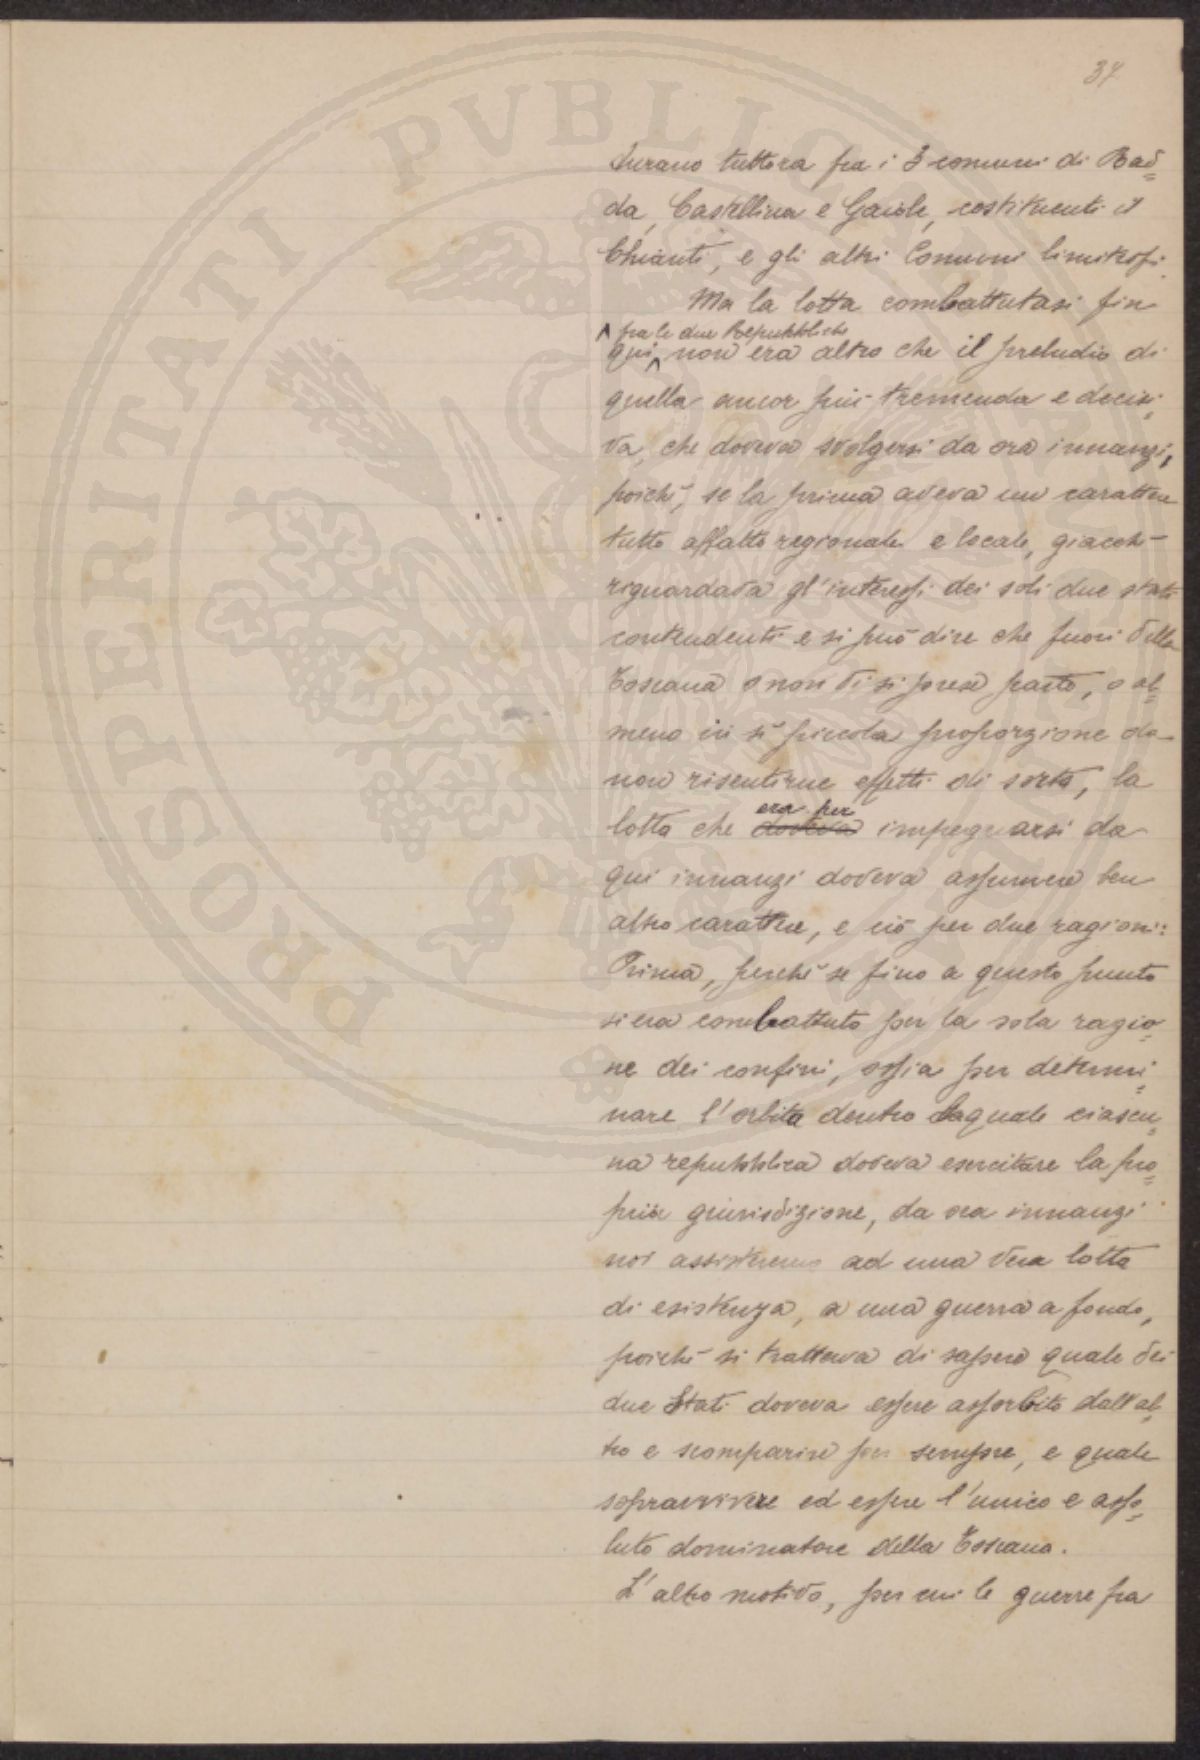 37
durano tuttora fra i 3 comuni di Rad=
da, Castellina e Gaiole, costituenti il
Chianti, e gli altri Comuni limitrofi.
Ma la lotta combattutasi fin
^ fra le due Repubbliche
qui ^ non era altro che il preludio di
quella ancor più tremenda e decisi=
va, che doveva svolgersi da ora innanzi,
poichè, se la prima aveva un carattere
tutto affatto regionale e locale, giacchè
riguardava gl'interessi dei soli due stati
contendenti e si può dire che fuori della
Toscana o non vi si prese parte, o al=
meno in sì piccola proporzione da
non risentirne effetti di sorta, la
era per
lotta che doveva impegnarsi da
qui innanzi doveva assumere ben
altro carattere, e ciò per due ragioni:
Prima, perchè se fino a questo punto
si era combattuto per la sola ragio=
ne dei confini, ossia per determi=
nare l'orbita dentro laquale ciascu=
na repubblica doveva esercitare la pro=
pria giurisdizione, da ora innanzi
noi assisteremo ad una vera lotta
di esistenza, a una guerra a fondo,
poichè si trattava di sapere quale dei
due Stati doveva essere assorbito dall'al=
tro e scomparire per sempre, e quale
sopravvivere ed essere l'unico e asso=
luto dominatore della Toscana.
L'altro motivo, per cui le guerre fra
PROSPERITATI PVBLICAE